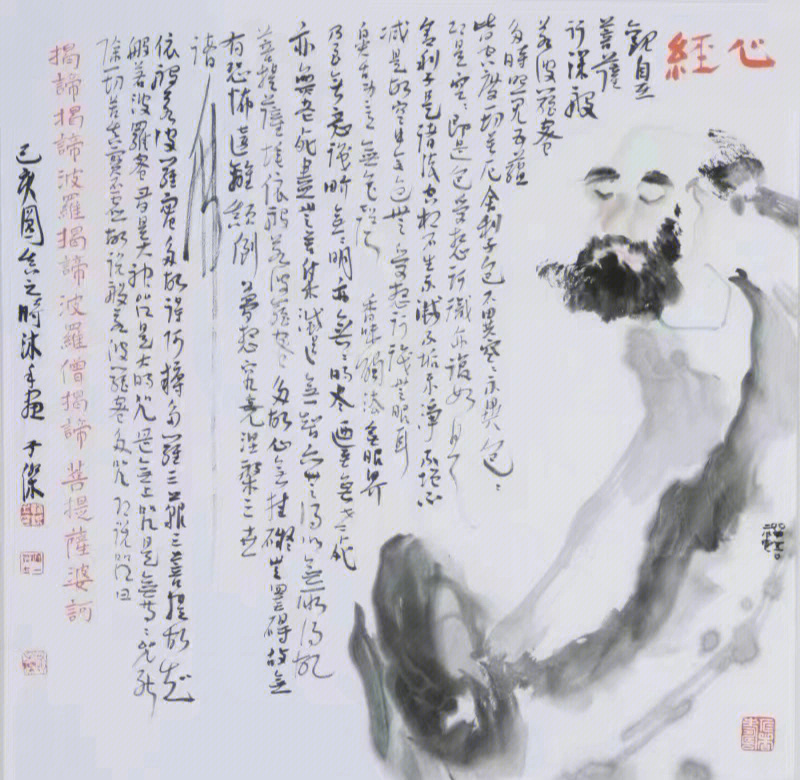 心經
觀自在
菩薩
行深般
若波羅蜜
多時照見五蘊
皆空度一切苦厄舍利子色不異空々不異色々
即是空空即是色受想行識亦復如是
舍利子是諸法空相不生不滅不垢不淨不增不
減是故空中無色無受想行識無眼耳
鼻舌身意無色聲香味觸法無眼界
乃至無意識
亦無老死盡無苦集滅道無智亦無得以無所得故
菩提薩埵依般若波羅蜜多故心無罣礙無罣礙故無
有恐怖遠離顛倒夢想究竟涅槃三世
諸佛
依般若波羅蜜多故得阿耨多羅三藐三菩提故知
般若波羅蜜多是大神咒是大明咒是無上咒是無等々咒能
除一切苦真實不虛故說般若波羅蜜多咒即說咒曰
揭諦揭諦波羅揭諦波羅僧揭諦菩提薩婆訶
己亥圓之時沐手畫子傑